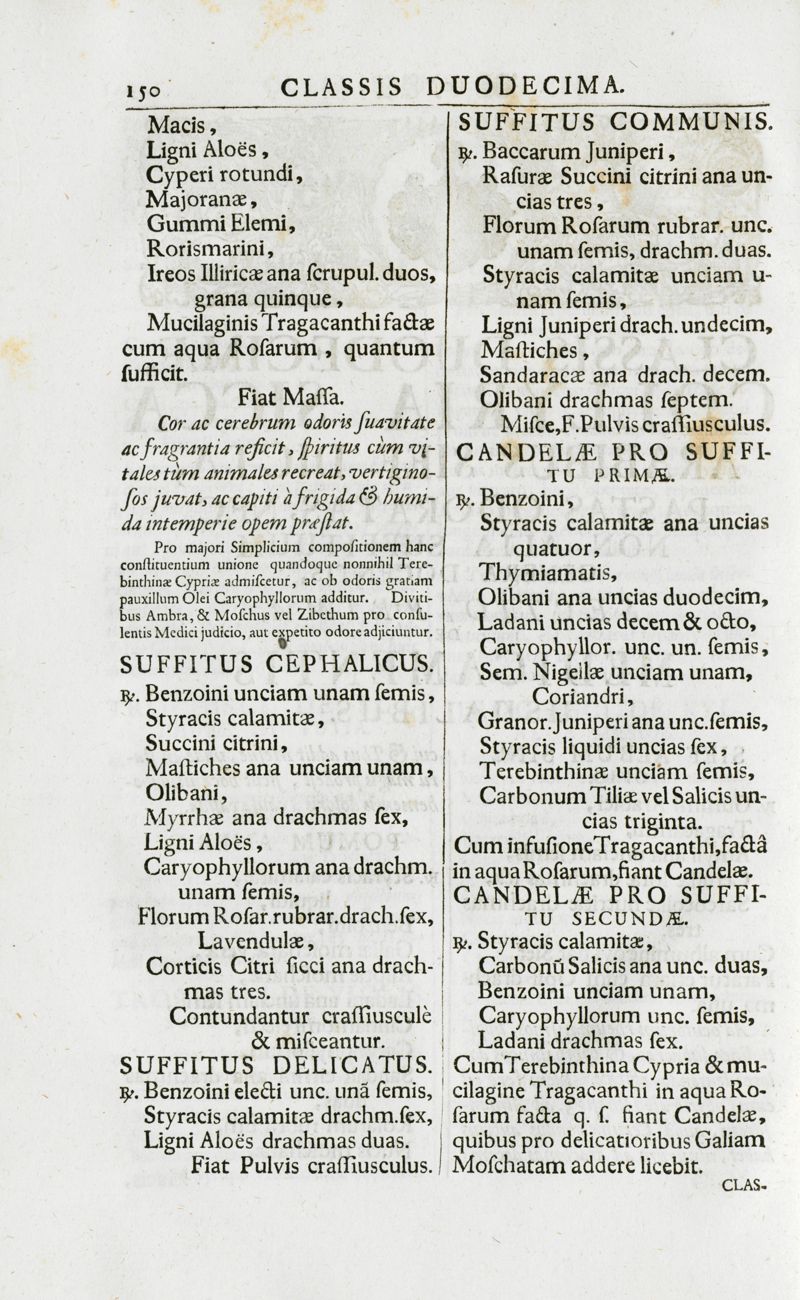 150
CLASSIS DUODECIMA.
Macis,
Ligni Aloës,
Cyperi rotundi,
Majoranæ,
Gummi Elemi,
Rorismarini,
Ireos Illiricæ ana ſcrupul. duos,
grana quinque,
Mucilaginis Tragacanthi factæ
cum aqua Roſarum , quantum
ſufficit.
Fiat Maſſa.
Cor ac cerebrum odoris ſuavitate
ac fragrantia reficit, ſpiritus cùm vi-
tales tùm animales recreat, vertigino-
ſos juvat, ac capiti à frigida & humi-
da intemperie opem præſtat.
Pro majori Simplicium compoſitionem hanc
conſtituentium unione quandoque nonnihil Tere-
binthinæ Cypriæ admiſcetur, ac ob odoris gratiam
pauxillum Olei Caryophyllorum additur. Diviti-
bus Ambra, & Moſchus vel Zibethum pro conſu-
lentis Medici judicio, aut expetito odore adjiciuntur.
SUFFITUS CEPHALICUS.
℞. Benzoini unciam unam ſemis,
Styracis calamitæ,
Succini citrini,
Maſtiches ana unciam unam,
Olibani,
Myrrhæ ana drachmas ſex,
Ligni Aloës,
Caryophyllorum ana drachm.
unam ſemis,
Florum Roſar. rubrar. drach. ſex,
Lavendulæ,
Corticis Citri ſicci ana drach-
mas tres.
Contundantur craſſiusculè
& miſceantur.
SUFFITUS DELICATUS.
℞. Benzoini electi unc. unã ſemis,
Styracis calamitæ drachm. ſex,
Ligni Aloës drachmas duas.
Fiat Pulvis craſſiusculus.
SUFFITUS COMMUNIS.
℞. Baccarum Juniperi,
Raſuræ Succini citrini ana un-
cias tres,
Florum Roſarum rubrar. unc.
unam ſemis, drachm. duas.
Styracis calamitæ unciam u-
nam ſemis,
Ligni Juniperi drach. undecim,
Maſtiches,
Sandaracæ ana drach. decem.
Olibani drachmas ſeptem.
Miſce, F. Pulvis craſſiusculus.
CANDELÆ PRO SUFFI-
TU PRIMÆ.
℞. Benzoini,
Styracis calamitæ ana uncias
quatuor,
Thymiamatis,
Olibani ana uncias duodecim,
Ladani uncias decem & octo,
Caryophyllor. unc. un. ſemis,
Sem. Nigellæ unciam unam,
Coriandri,
Granor. Juniperi ana unc. ſemis,
Styracis liquidi uncias ſex,
Terebinthinæ unciam ſemis,
Carbonum Tiliæ vel Salicis un-
cias triginta.
Cum infuſione Tragacanthi, factâ
in aqua Roſarum, fiant Candelæ.
CANDELÆ PRO SUFFI-
TU SECUNDÆ.
℞. Styracis calamitæ,
Carbonũ Salicis ana unc. duas,
Benzoini unciam unam,
Caryophyllorum unc. ſemis,
Ladani drachmas ſex.
Cum Terebinthina Cypria & mu-
cilagine Tragacanthi in aqua Ro-
ſarum facta q. ſ. fiant Candelæ,
quibus pro delicatioribus Galiam
Moſchatam addere licebit.
CLAS-